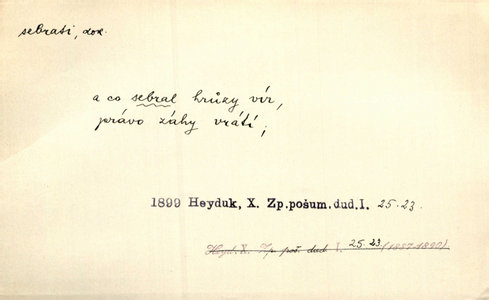 sebrati, dok.
a co sebral hrůzy vír,
právo záhy vrátí;
1899 Heyduk, X. Zp.pošum.dud.I. 25.23.
Heyd. X. Zp. poš. dud. I. 25.23 (1887-1890)